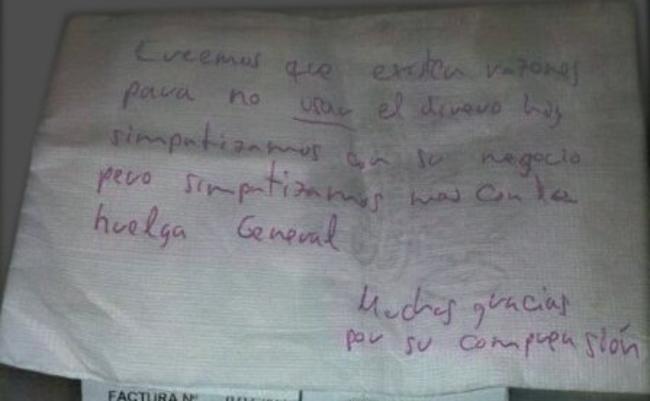 Creemos que existen razones
para no usar el dinero hoy
simpatizamos con su negocio
pero simpatizamos mas con la
huelga General
Muchas gracias
por su comprensión
FACTURA Nº